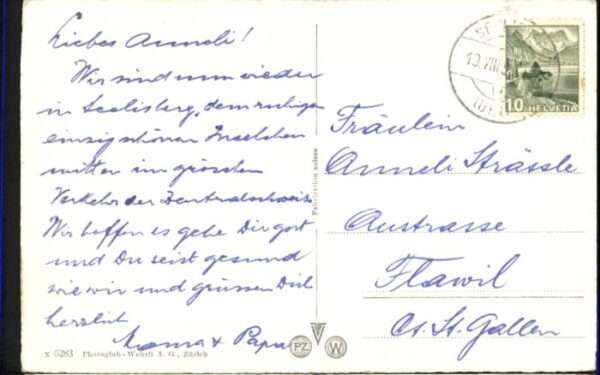 Liebes Anneli!
Wir sind nun wieder
in Seelisberg, dem ruhigen
einzig schönen Inselchen
mitten im grossen
Verkehr der Zentralschweiz
Wir hoffen es gehe Dir gort
und Du seist gesund
wie wir und grüssen Dich
herzlich
Mama + Papa
Fräulein
Anneli Strässle
Austrasse
Flawil
Ct. St. Gallen
10 HELVETIA
Fabrication suisse
X 5283 Photoglob-Wehrli A. G., Zürich
PZ
W